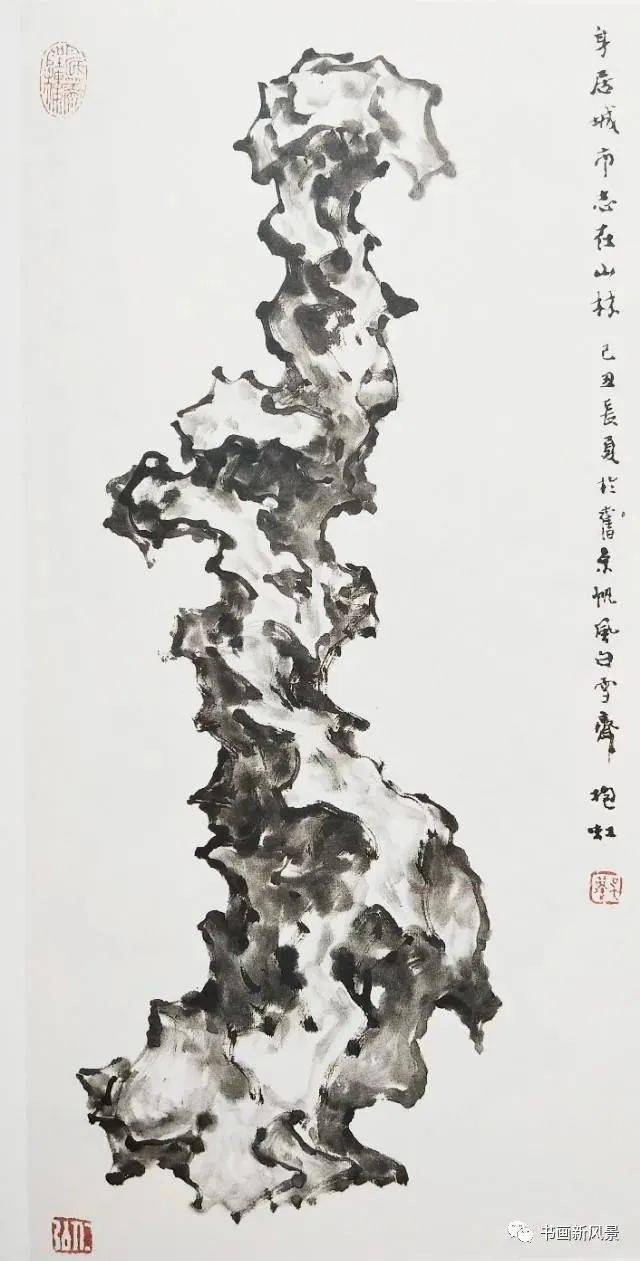 身居城市志在山林 己丑長夏於舊京帆風白雪齋 抱虹
书画新风景